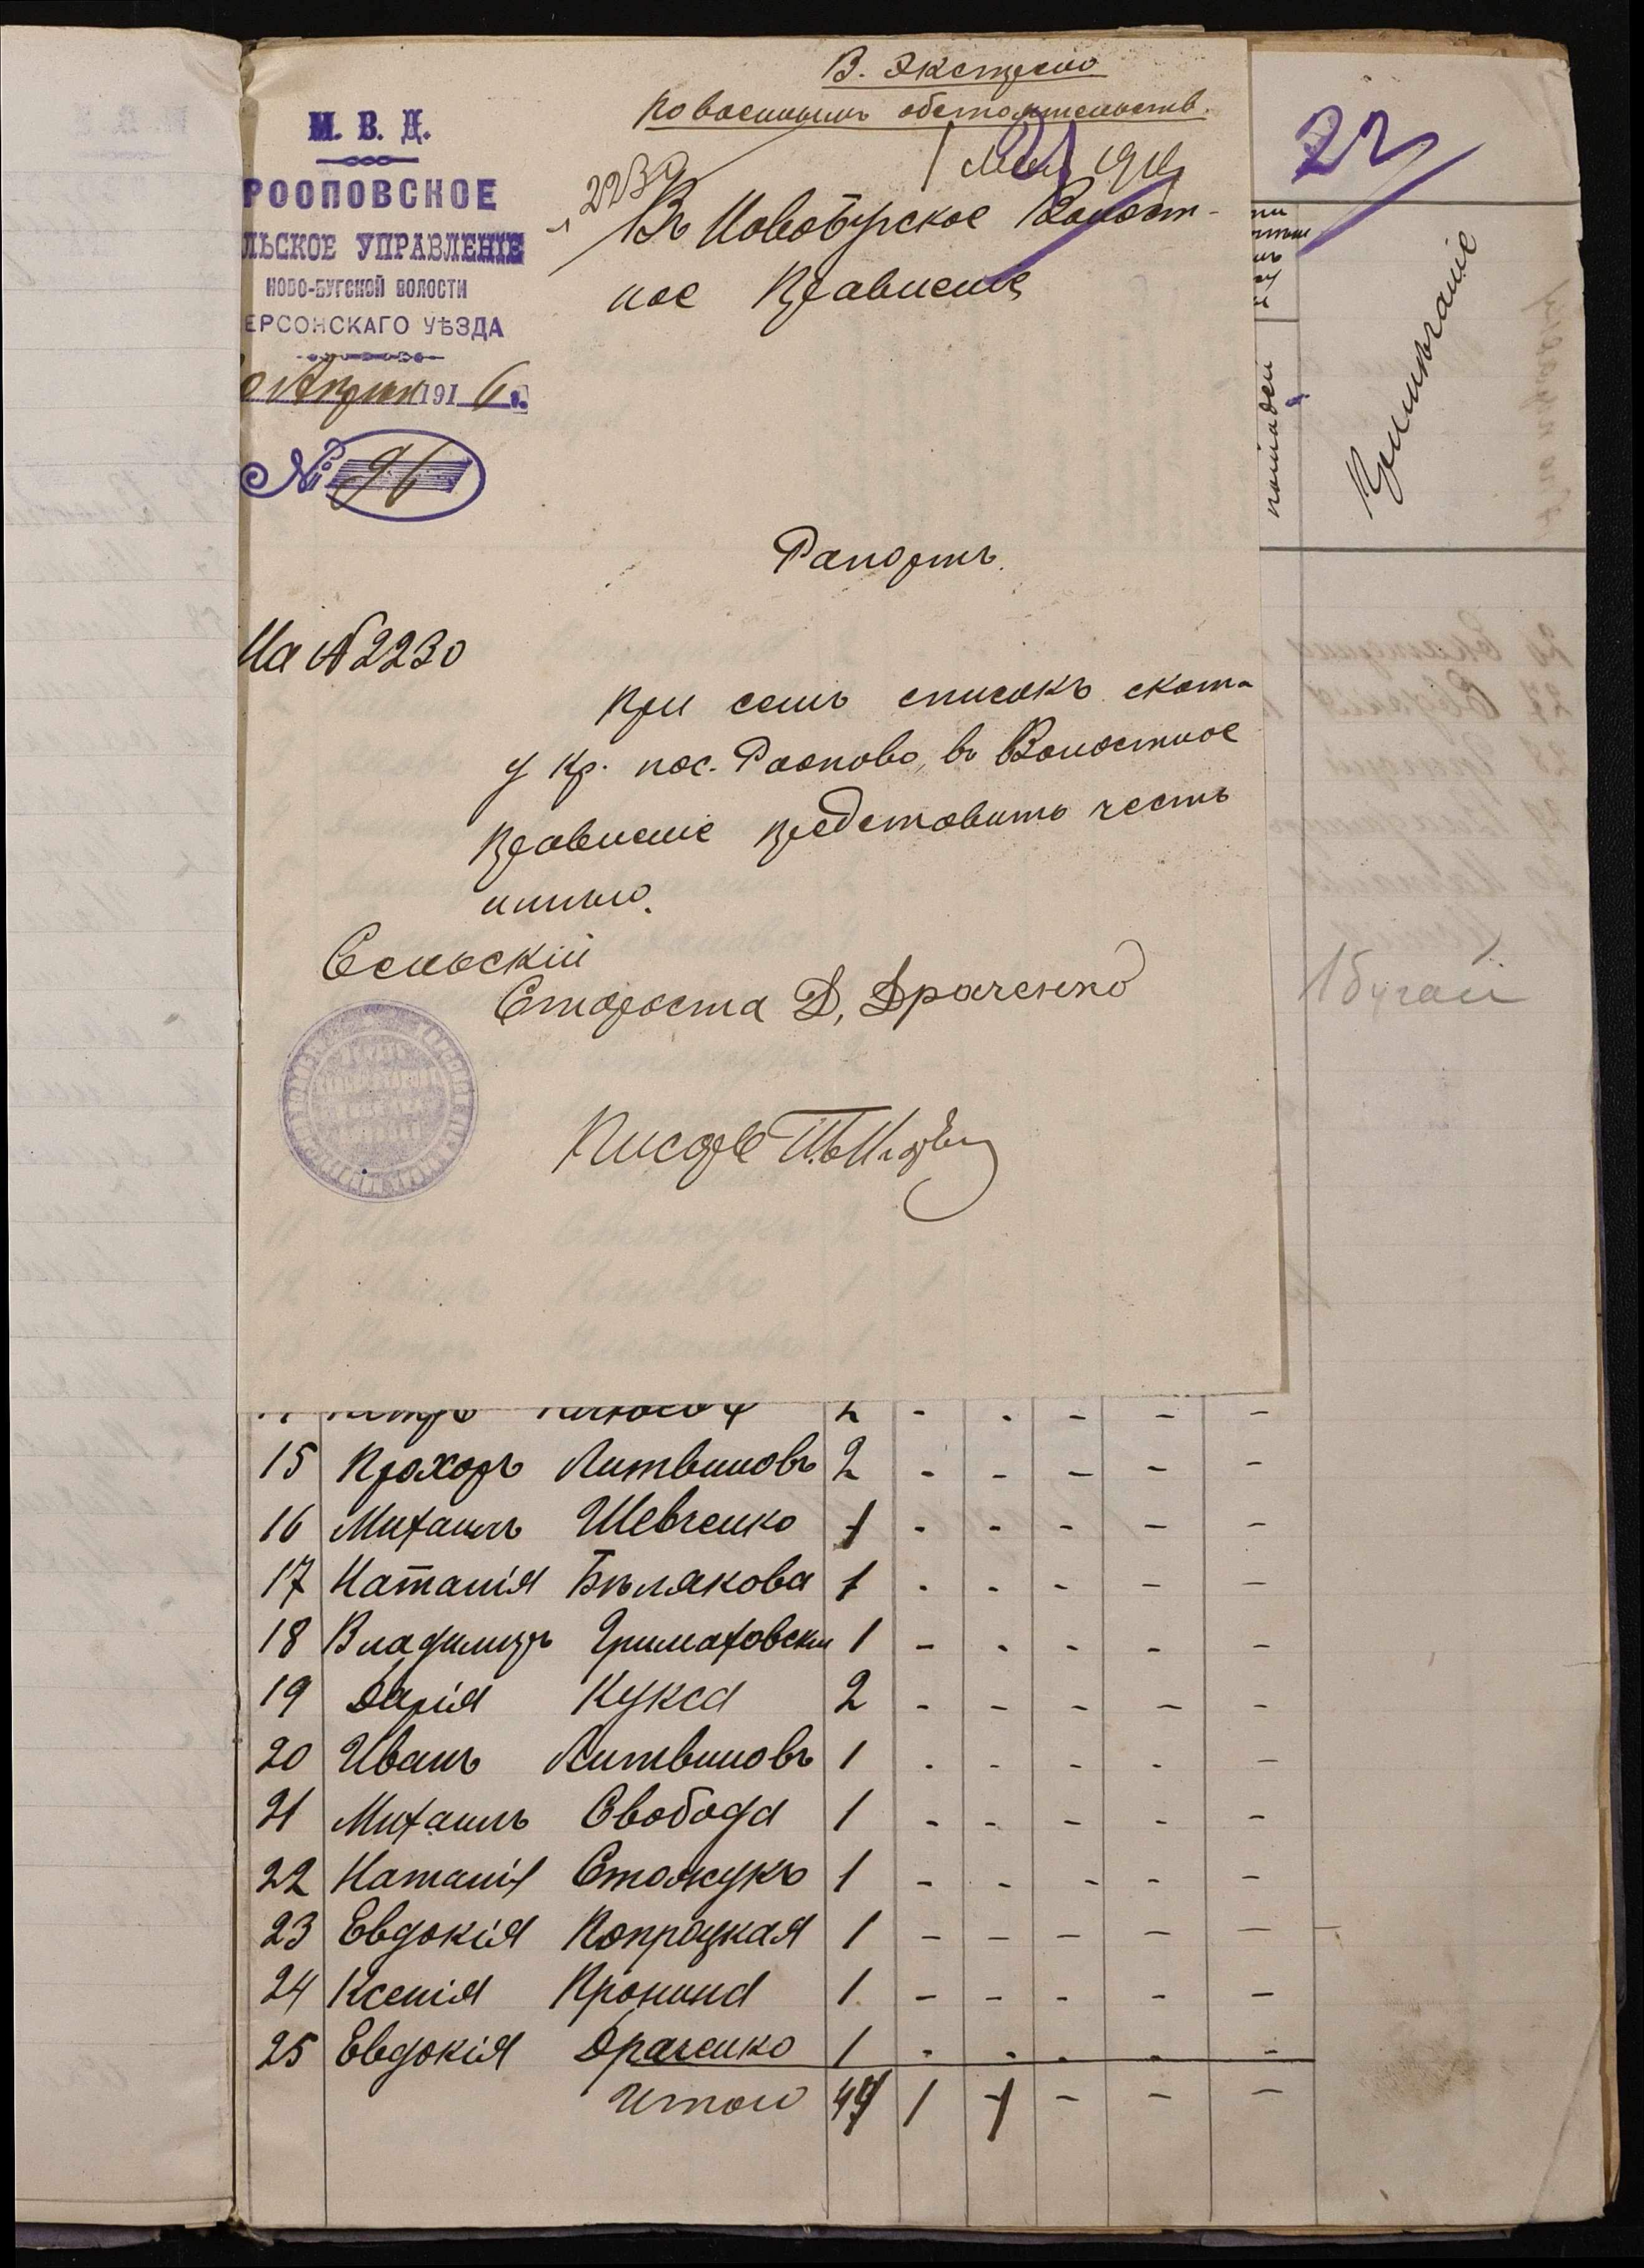 В. Экстрено
По военнымъ обстоятельств.
М. В. Д.
РООПОВСКОЕ
ЛЬСКОЕ УПРАВЛЕНІЕ
НОВО-БУГСКОЙ ВОЛОСТИ
ЕРСОНСКАГО УѢЗДА
Апреля 1916 г.
№ 96
1 мая 1916
2230
Въ Новобугское Волост-
ное Правленіе
22
Примѣчаніе
лошадей
Рапортъ.
На № 2230
При семъ списокъ скота
у Кр. пос. Роопово, въ Волостное
Правленіе представить честь
имѣю.
Сельскій
Староста Д. Драченко
Писарь
1 бугай
15 Прохоръ Литвиновъ 2 - - - - -
16 Михаилъ Шевченко 1 - - - - -
17 Наталія Бѣлякова 1 - - - - -
18 Владимиръ Гримаховски 1 - - - - -
19 Дарія Кукса 2 - - - - -
20 Иванъ Литвиновъ 1 - - - - -
21 Михаилъ Свобода 1 - - - - -
22 Наталія Столжукъ 1 - - - - -
23 Евдокія Попроцкая 1 - - - - -
24 Ксенія Пронина 1 - - - - -
25 Евдокія Драченко 1 - - - - -
Итого 1 1 - - -